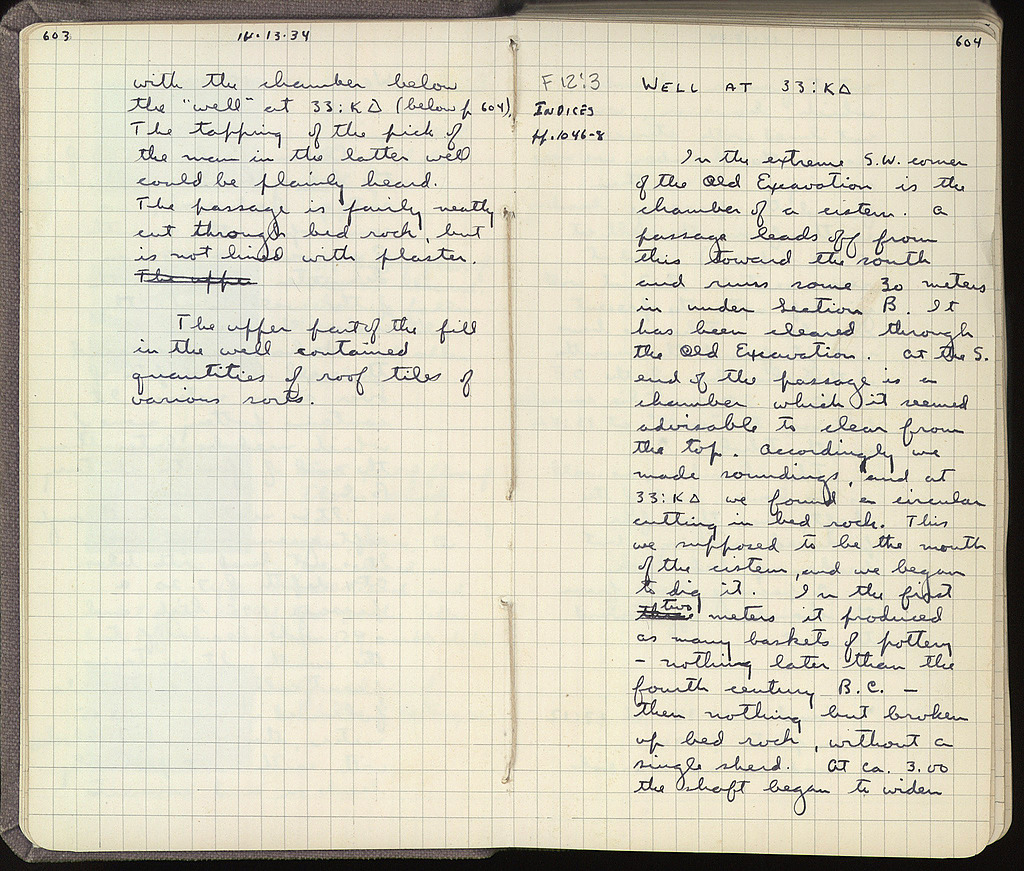 603
IV·13·34
with the chamber below
the "well" at 33:ΚΔ (below p 604).
The tapping of the pick of
the man in the latter well
could be plainly heard.
The passage is fairly neatly
cut through bed rock, but
is not lined with plaster.
The upper
The upper part of the fill
in the well contained
quantities of roof tiles of
various sorts.
604
F 12:3
INDICES
pp. 1046-8
WELL AT 33:ΚΔ
In the extreme S.W. corner
of the Old Excavation is the
chamber of a cistern. A
passage leads off from
this toward the south
and runs some 30 meters
in under Section B. It
has been cleared through
the Old Excavation. At the S.
end of the passage is a
chamber which it seemed
advisable to clear from
the top. Accordingly we
made soundings, and at
33:ΚΔ we found a circular
cutting in bed rock. This
we supposed to be the mouth
of the cistern, and we began
to dig it. In the first
three two meters it produced
as many baskets of pottery
– nothing later than the
fourth century B.C. –
then nothing but broken
up bed rock, without a
single sherd. At ca. 3.00
the shaft began to widen